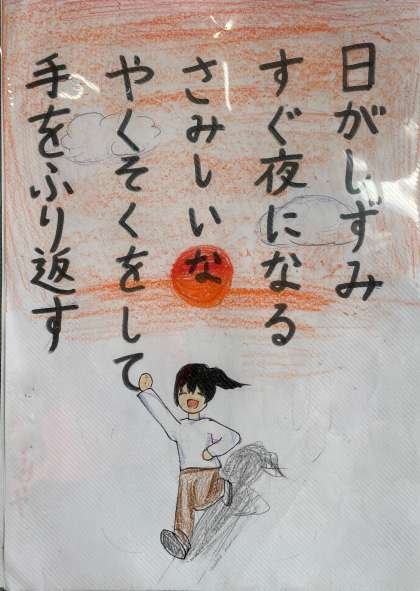 日がしずみ
すぐ夜になる
さみしいな
やくそくをして
手をふり返す